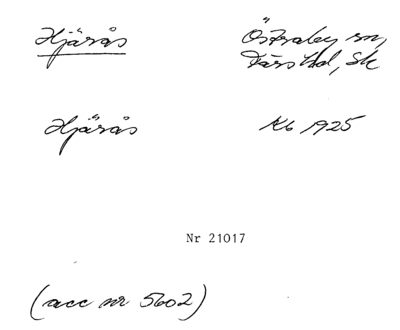 Hjärås Österlev sn,
Färs hd, Sk
Hjärås Kb 1925
Nr 21017
(acc nr 5602)